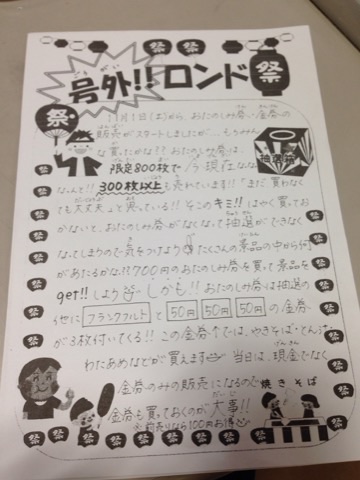 祭 祭 祭
ごうがい
号外!!ロンド 祭
祭
11月1日(土)から、おたのしみ券・金券の
販売がスタートしましたが…もうみんな
買ったかな??おたのしみ券は、
限定800枚で今現在なな
抽選箱
なんと!!300枚以上も売れています!!「まだ買わなく
ても大丈夫」と思っている!!そこのキミ!!はやく買ってお
かないと、おたのしみ券がなくなって抽選ができなく
なってしまうので気をつけよう たくさんの景品の中から何
があたるかな!?700円のおたのしみ券を買って景品を
get!!しよう しかも!!おたのしみ券は抽選の
他に フランクフルト と 50円 50円 50円 の金券
が3枚付いてくる!!この金券1つでは、やきそば・とん汁・
わたあめなどが買えます 当日は、現金でなく
金券のみの販売になるので 焼きそば
金券を買っておくのが大事!!
☆前売りなら100円お得
祭 祭 祭 祭 祭 祭 祭 祭